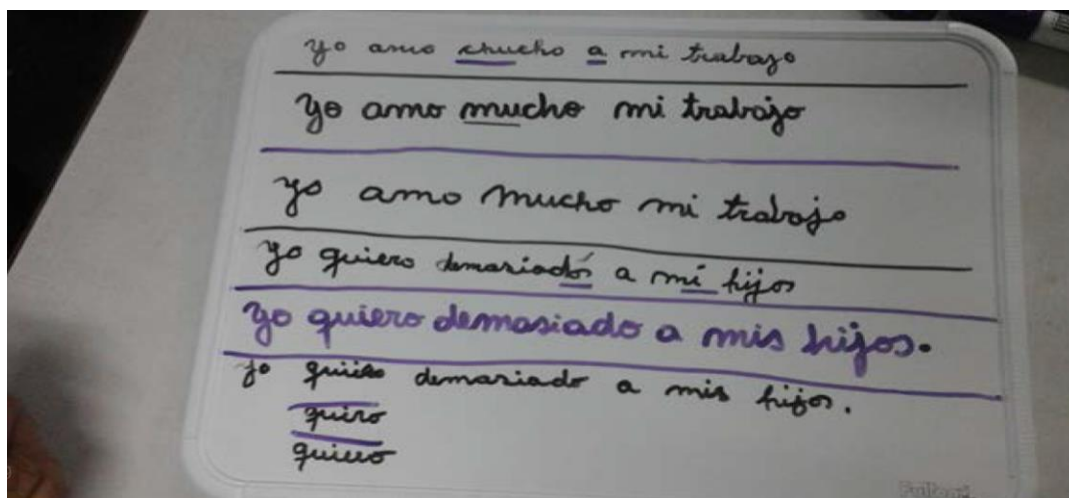 yo amo chucho a mi trabajo
Yo amo mucho mi trabajo
yo amo mucho mi trabajo
yo quiero demariadós a mí hijos
Yo quiero demasiado a mis hijos.
yo quiieo demariado a mis hijos.
quiro
quiero